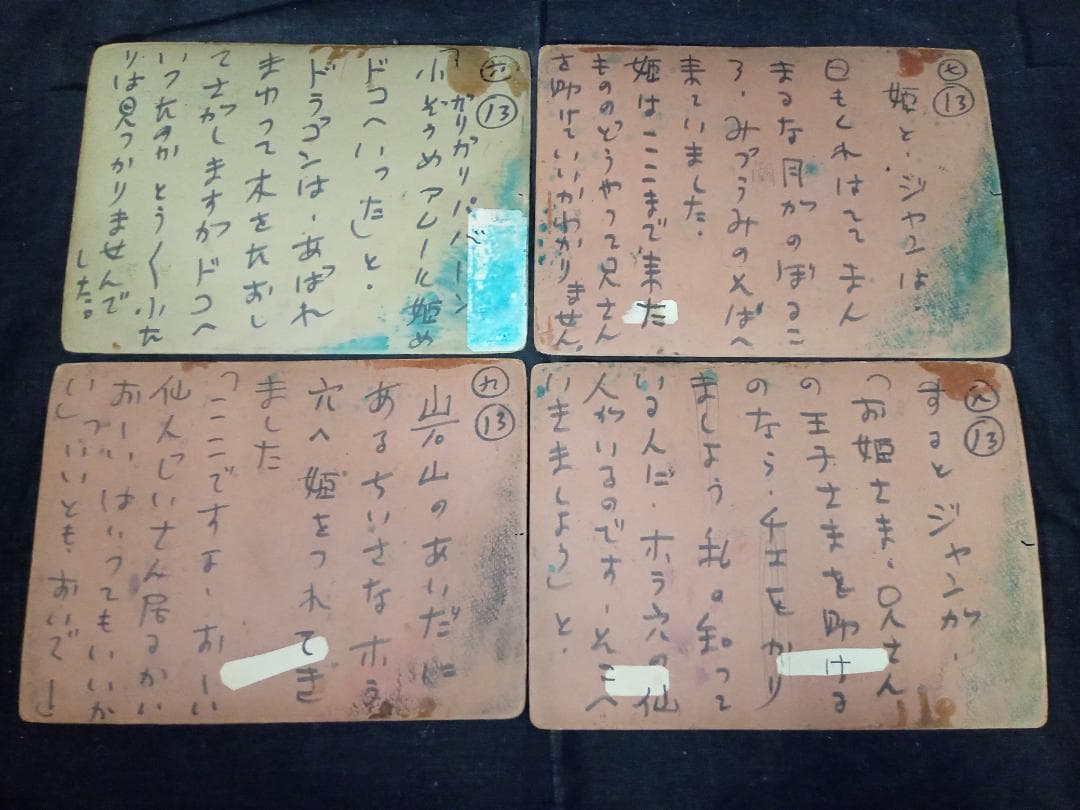 六
⑬
「ガリガリババーン
小ぞうめアムール姫め
ドコへいった」と・
ドラゴンは・あばれ
まわって木をたおし
てさがしますがドコへ
いったのかとう〳〵小た
りは見つかりませんで
した。
七
⑬
姫と・ジャンは・
日もくれはててまん
まるな月がのぼるこ
ろ・みづうみのそばへ
来ていました。
姫はここまで来た
もののどうやって兄さん
を助けていいかわかりません。
八
⑬
するとジャンが・
「お姫さま・兄さん
の王子さまを助ける
のなら・チエをかり
ましよう私の知って
いるんだ・ホラ穴の仙
人がいるのです・そこへ
いきましよう」と・
九
⑬
岩山のあいだに
あるちいさなホラ
穴へ姫をつれてき
ました
「ここですよ・おーい
仙人じいさん居るかい
おーいはいってもいいか
い」「いいとも・おいで」